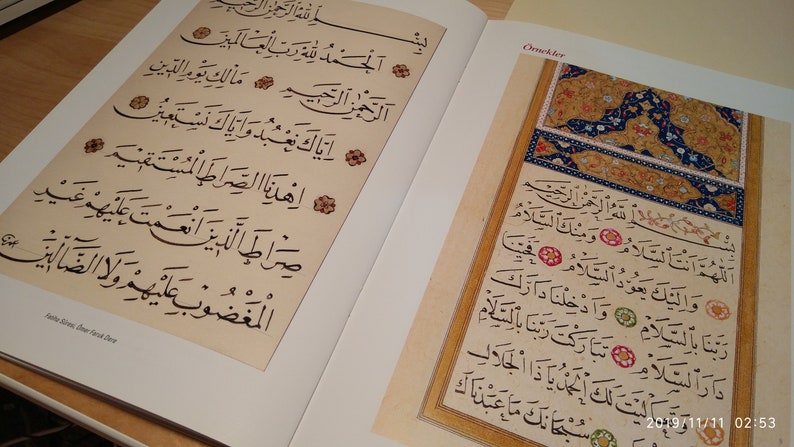 بسم الله الرحمن الرحيم
الحمد لله رب العالمين
الرحمن الرحيم مالك يوم الدين
اياك نعبد واياك نستعين
اهدنا الصراط المستقيم
صراط الذين انعمت عليهم غير
المغضوب عليهم ولا الضالين
Fatiha Sûresi, Ömer Faruk Dere
Örnekler
بسم الله الرحمن الرحيم
اللهم انت السلام ومنك السلام
واليك يعود السلام فحينا
ربنا بالسلام وادخلنا دارك
دار السلام تباركت ربنا بالسلام
لك الحمد يا ذا الجلال
سبحانك ما عبدناك
2019/11/11 02:53